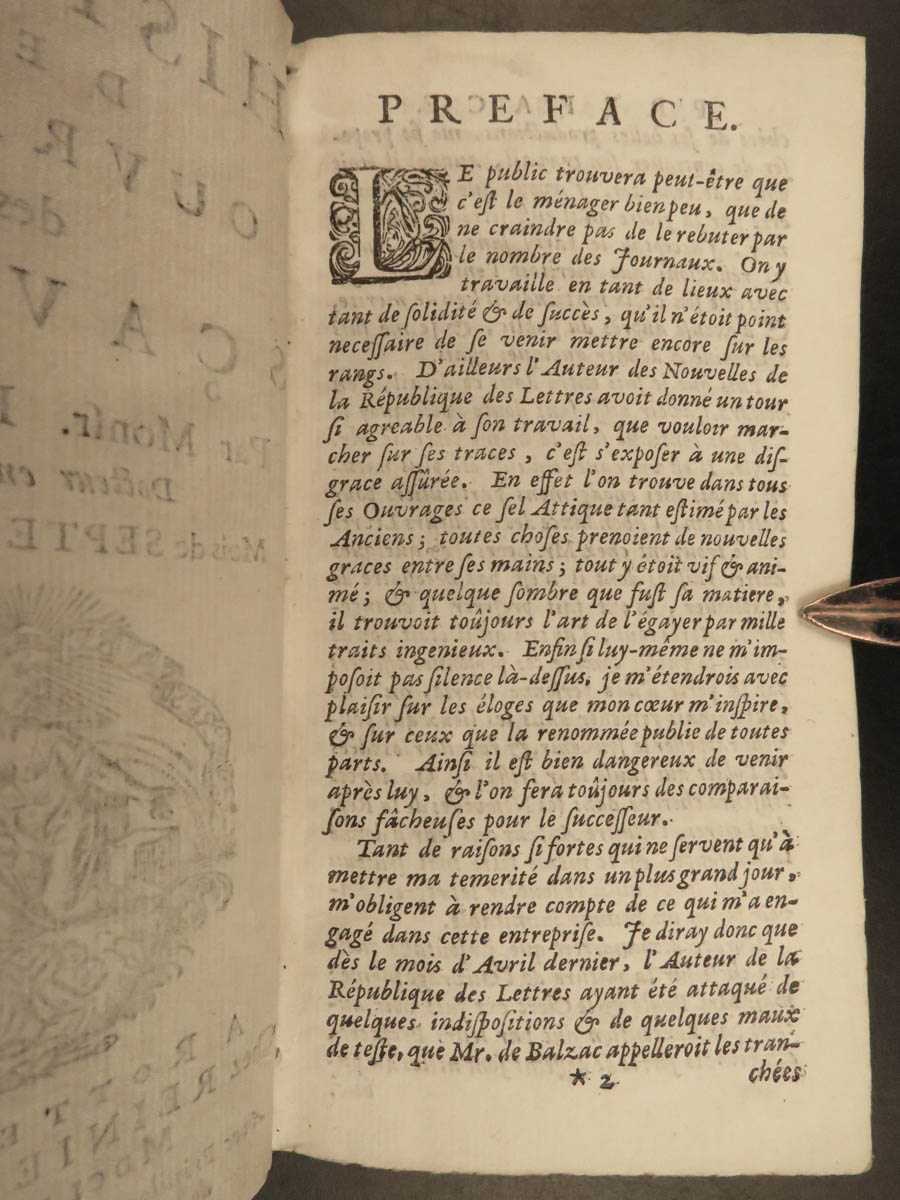 PREFACE.
LE public trouvera peut-être que
c'eſt le ménager bien peu, que de
ne craindre pas de le rebuter par
le nombre des Journaux. On y
travaille en tant de lieux avec
tant de ſolidité & de ſuccès, qu'il n'étoit point
neceſſaire de ſe venir mettre encore ſur les
rangs. D'ailleurs l'Auteur des Nouvelles de
la République des Lettres avoit donné un tour
ſi agreable à ſon travail, que vouloir mar-
cher ſur ſes traces, c'eſt s'expoſer à une diſ-
grace aſſûrée. En effet l'on trouve dans tous
ſes Ouvrages ce ſel Attique tant eſtimé par les
Anciens; toutes choſes prenoient de nouvelles
graces entre ſes mains; tout y étoit vif & ani-
mé; & quelque ſombre que fuſt ſa matiere,
il trouvoit toûjours l'art de l'égayer par mille
traits ingenieux. Enfin ſi luy-même ne m'im-
poſoit pas ſilence là-deſſus, je m'étendrois avec
plaiſir ſur les éloges que mon cœur m'inſpire,
& ſur ceux que la renommée publie de toutes
parts. Ainſi il eſt bien dangereux de venir
après luy, & l'on fera toûjours des comparai-
ſons fâcheuſes pour le ſucceſſeur.
Tant de raiſons ſi fortes qui ne ſervent qu'à
mettre ma temerité dans un plus grand jour,
m'obligent à rendre compte de ce qui m'a en-
gagé dans cette entrepriſe. Je diray donc que
dès le mois d'Avril dernier, l'Auteur de la
République des Lettres ayant été attaqué de
quelques indiſpoſitions & de quelques maux
de teſte, que Mr. de Balzac appelleroit les tran-
* 2 chées